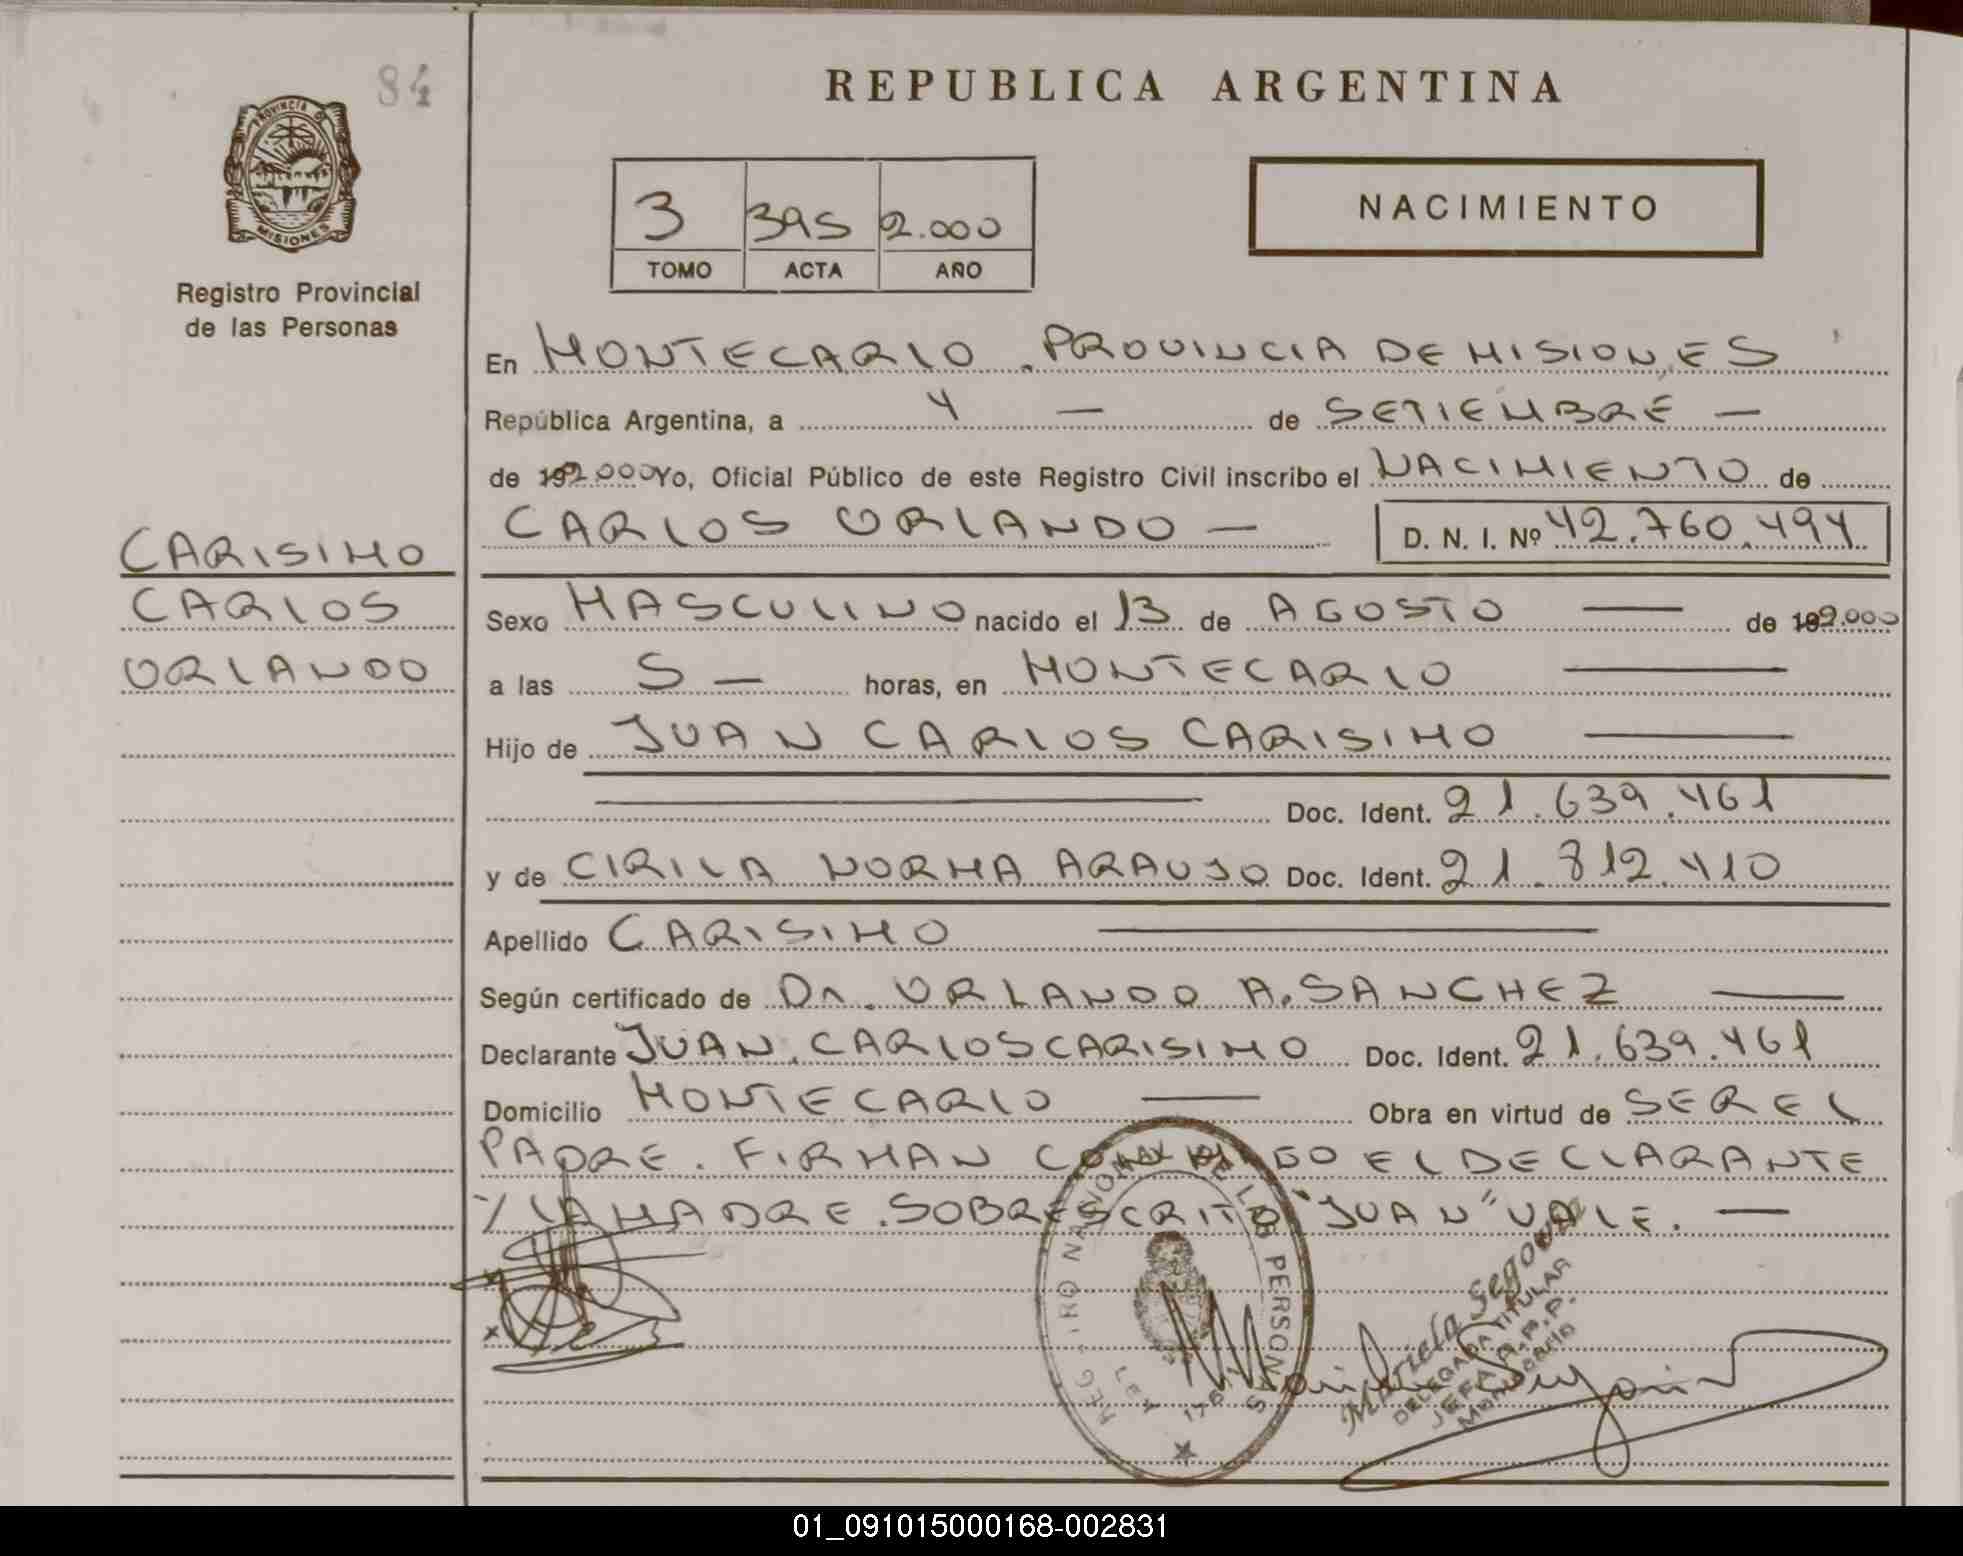 84
PROVINCIA DE
MISIONES
Registro Provincial
de las Personas
CARISIMO
CARLOS
ORLANDO
REPUBLICA ARGENTINA
3 395 2.000
TOMO ACTA AÑO
NACIMIENTO
En MONTECARLO. PROVINCIA DE MISIONES
República Argentina, a 4 — de SETIEMBRE —
de 192.000 Yo, Oficial Público de este Registro Civil inscribo el NACIMIENTO de
CARLOS ORLANDO — D. N. I. Nº 42.760.494
Sexo MASCULINO nacido el 13 de AGOSTO — de 192.000
a las 5 — horas, en MONTECARLO —
Hijo de JUAN CARLOS CARISIMO —
— Doc. Ident. 21.639.461
y de CIRILA NORMA ARAUJO Doc. Ident. 21.812.410
Apellido CARISIMO —
Según certificado de Dr. ORLANDO A. SANCHEZ —
Declarante JUAN CARLOS CARISIMO Doc. Ident. 21.639.461
Domicilio MONTECARLO — Obra en virtud de SER EL
PADRE. FIRMAN CONMIGO EL DECLARANTE
Y LA MADRE. SOBRESCRITO "JUAN" VALE. —
REGISTRO NACIONAL DE LAS PERSONAS
LEY
Mabriela Segovia
DELEGADA TITULAR
JEFA A.R.P.
Montecarlo
01_091015000168-002831